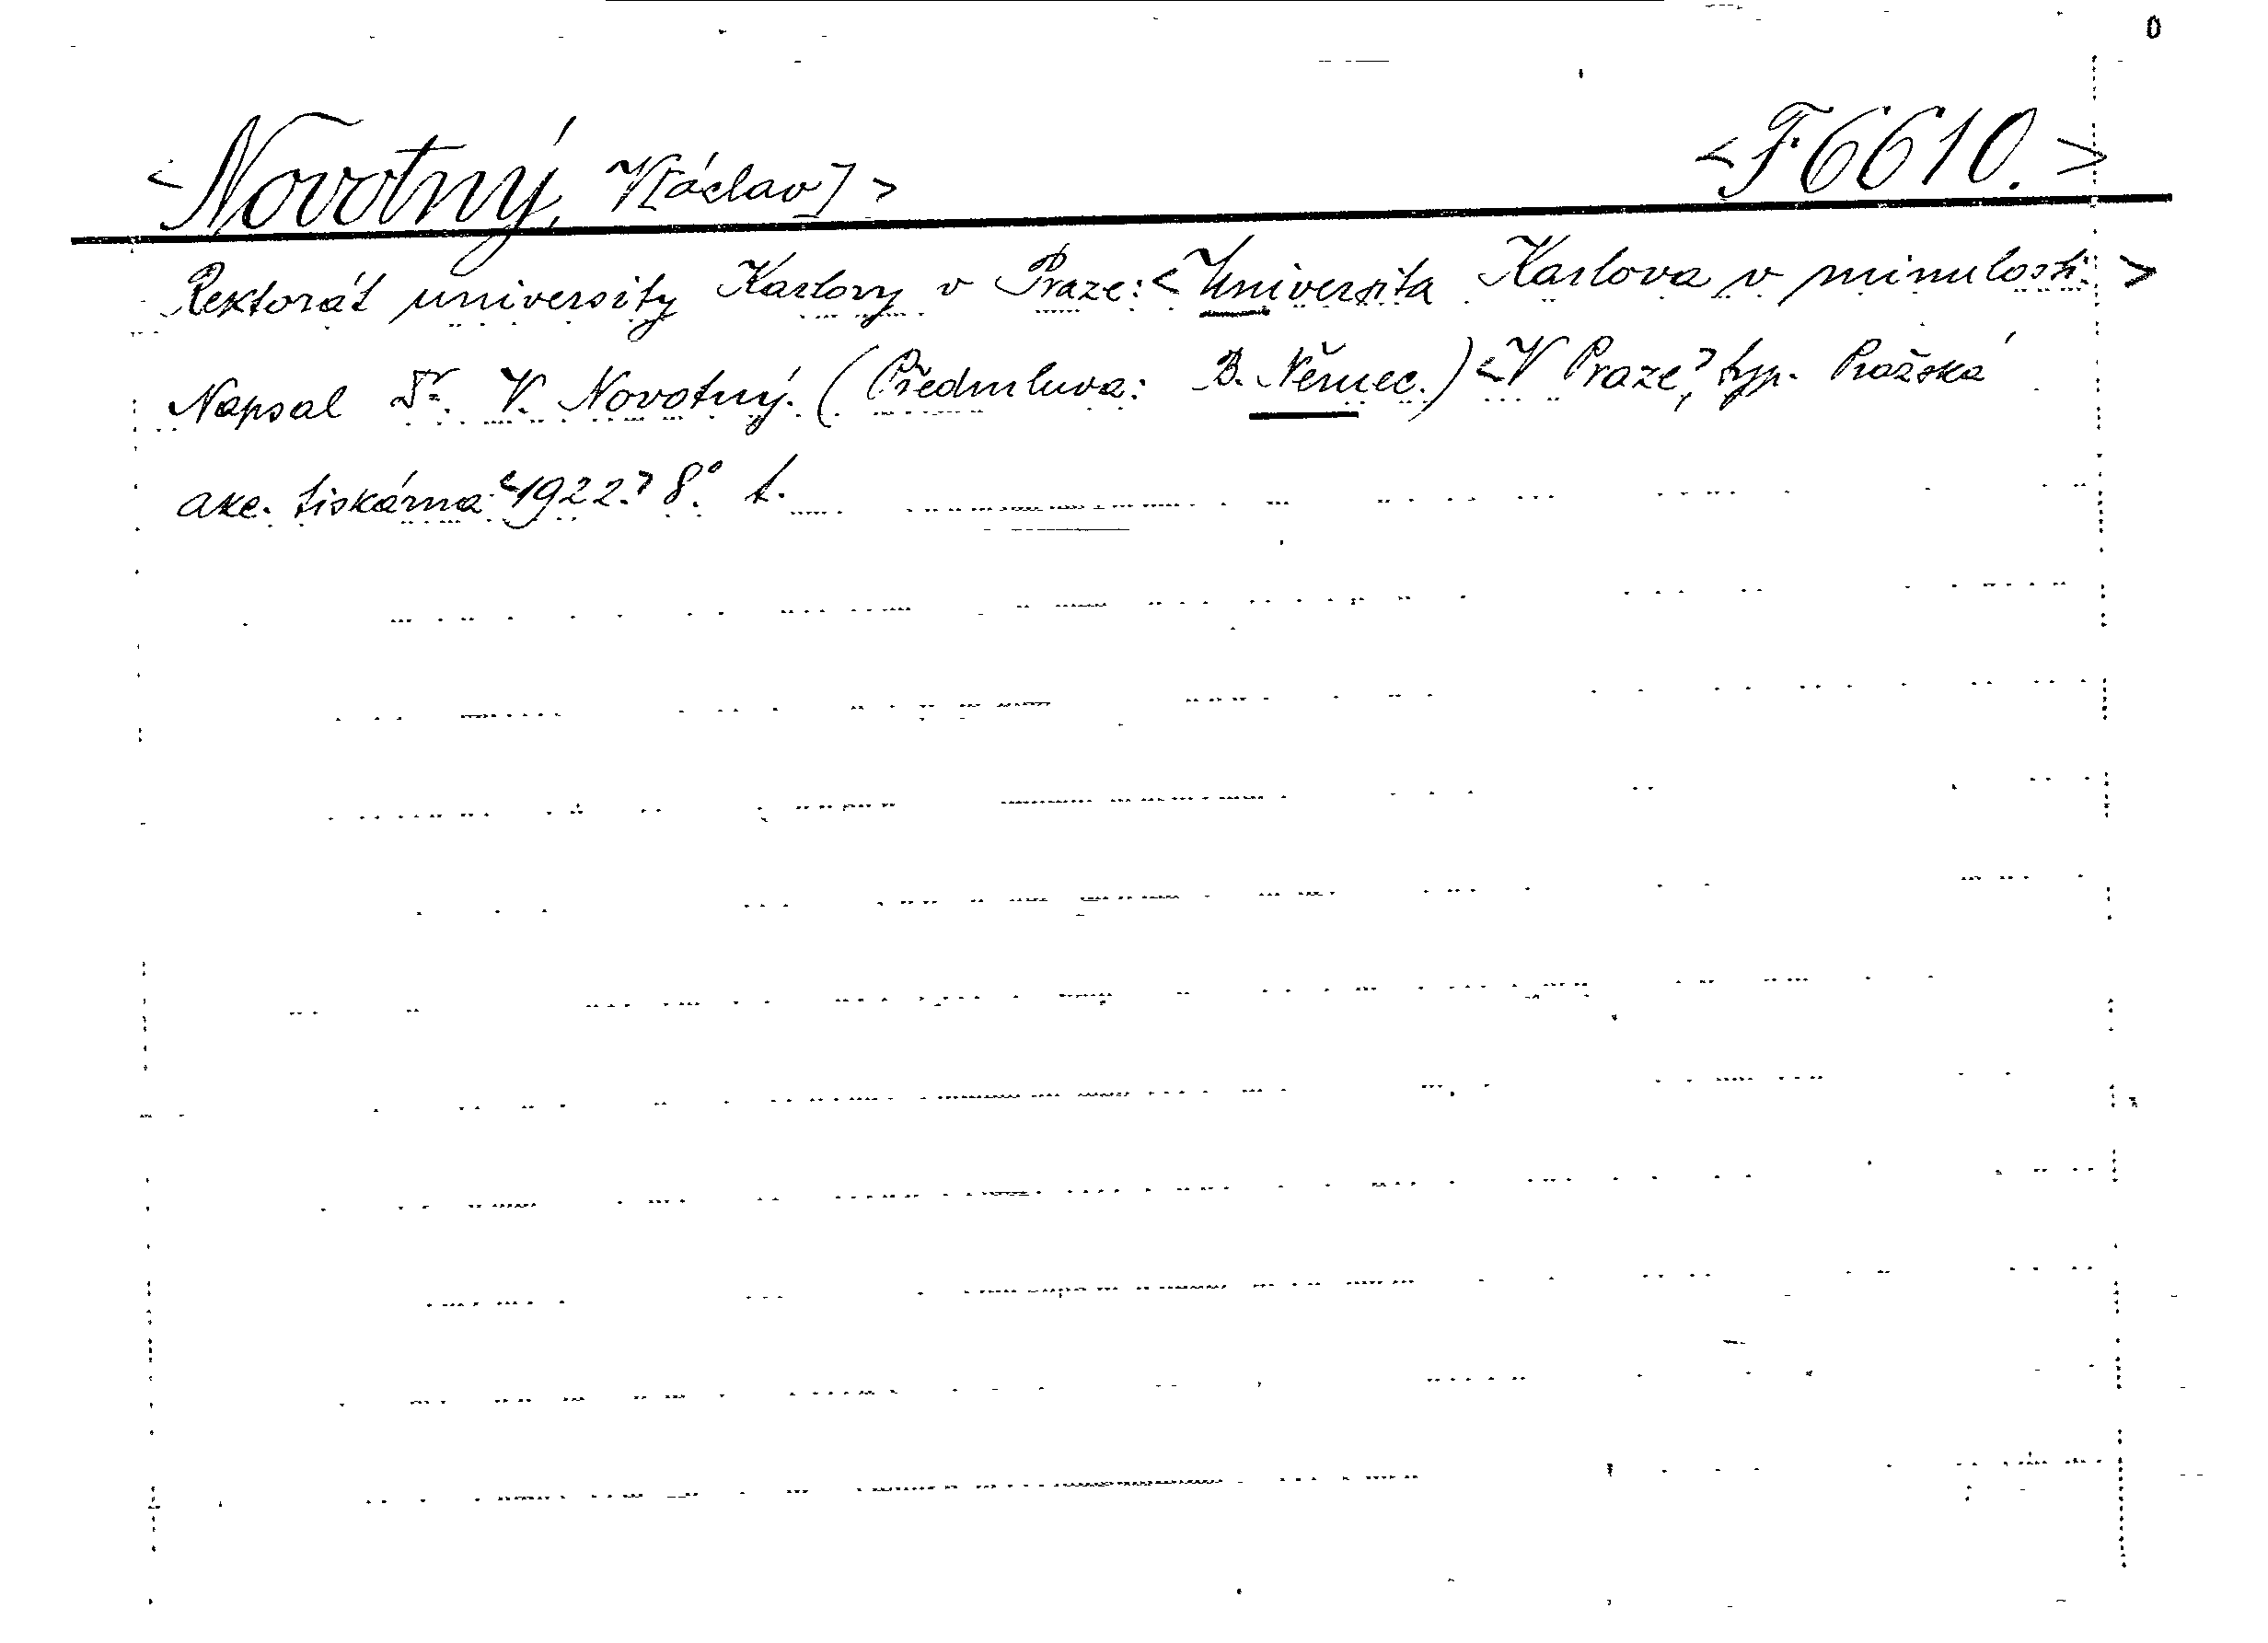 0
<Novotný, V[áclav]> <F 6610.>
Rektorát university Karlovy v Praze: <Universita Karlova v minulosti.>
Napsal Dr. V. Novotný. (Předmluva: B. Němec.) <V Praze>, typ. Pražská
akc. tiskárna <1922.> 8°. t.